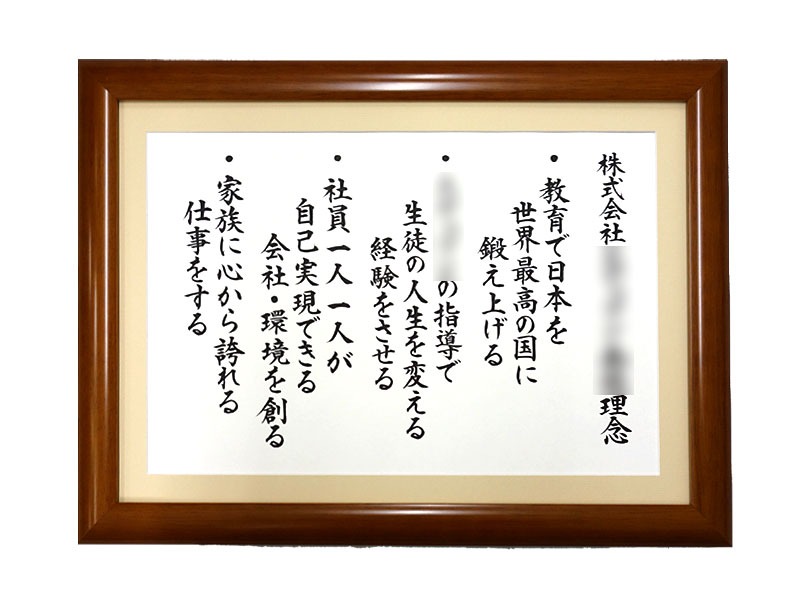 株式会社 理念
・教育で日本を
世界最高の国に
鍛え上げる
・ の指導で
生徒の人生を変える
経験をさせる
・社員一人一人が
自己実現できる
会社・環境を創る
・家族に心から誇れる
仕事をする